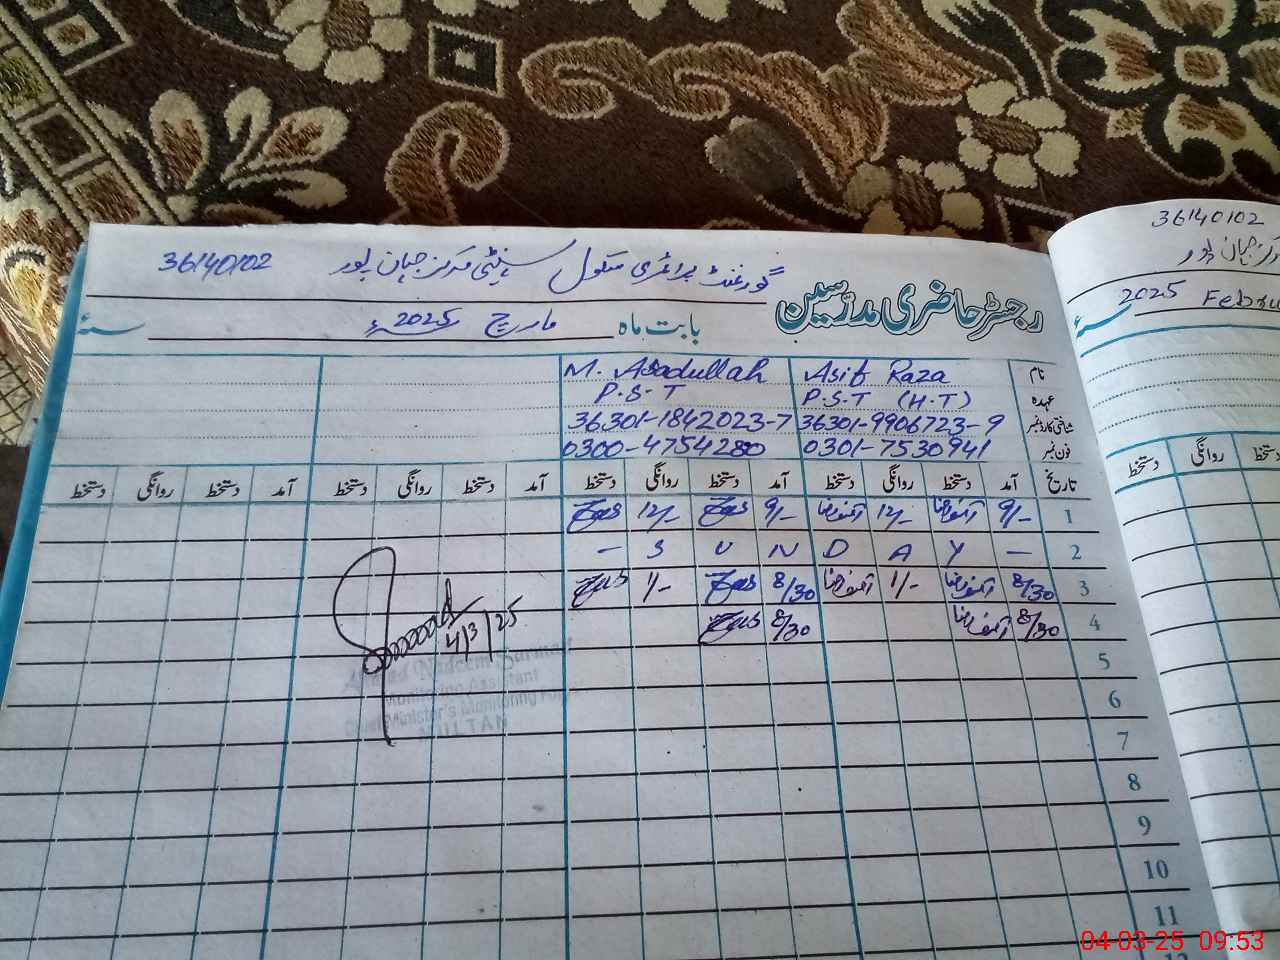 36140102 گورنمنٹ پرائمری سکول سینٹی مرکز جہان پور
رجسٹر حاضری مدرّسین
بابت ماہ مارچ 2025ء سنہء
نام Asif Raza M. Asadullah
عہدہ P.S.T (H.T) P.S.T
شناختی کارڈ نمبر 36301-9906723-9 36301-1842023-7
فون نمبر 0301-7530941 0300-4754280
تاریخ آمد دستخط روانگی دستخط آمد دستخط روانگی دستخط آمد دستخط روانگی دستخط آمد دستخط روانگی دستخط
1 9/- آصف رضا 12/- آصف رضا 9/- 12/-
2 - S U N D A Y -
3 8/30 آصف رضا 1/- آصف رضا 8/30 1/-
4 8/30 آصف رضا 8/30
5
6
7
8
9
10
11
12
4/3/25
Monitoring Assistant
Chief Minister's Monitoring Force
MULTAN
36140102
مرکز جہان پور
2025 Febru
سنہء
دستخط روانگی دستخط
04-03-25 09:53